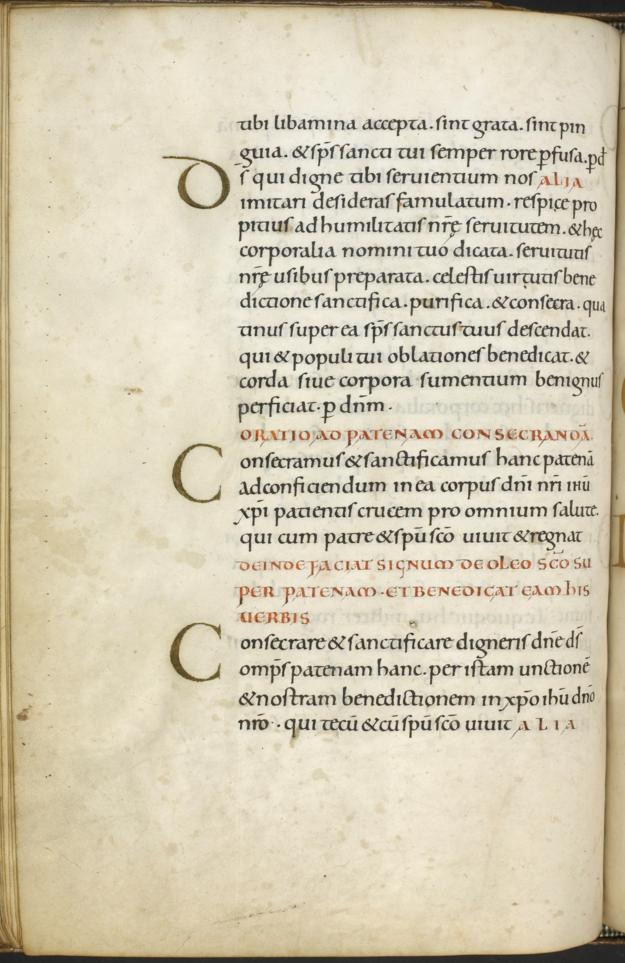 tibi libamina accepta. sint grata. sint pin
guia. & sp̄s sancti tui semper rore ꝑfusa. ꝑ d̄
D s̄ qui digne tibi seruientium nos ALIA
imitari desideras famulatum. respice pro
pitius ad humilitatis nrē seruitutem. & hęc
corporalia nomini tuo dicata. seruitutis
nrē usibus preparata. celestis uirtutis bene
dictione sanctifica. purifica. & consecra. qua
tinus super ea sp̄s sanctus tuus descendat.
qui & populi tui oblationes benedicat. &
corda siue corpora sumentium benignus
perficiat. ꝑ dn̄m.
ORATIO AD PATENAM CONSECRANDĀ
Consecramus & sanctificamus hanc patenā
ad conficiendum in ea corpus dn̄i nr̄i ihū
xp̄i patientis crucem pro omnium salute.
qui cum patre & sp̄u sc̄o uiuit & regnat
DEINDE FACIAT SIGNUM DE OLEO SC̄O SU
PER PATENAM. ET BENEDICAT EAM HIS
UERBIS
Consecrare & sanctificare digneris dn̄e d̄s
omp̄s patenam hanc. per istam unctionē
& nostram benedictionem in xp̄o ihū dn̄o
nr̄o. qui tecū & cū sp̄u sc̄o uiuit ALIA